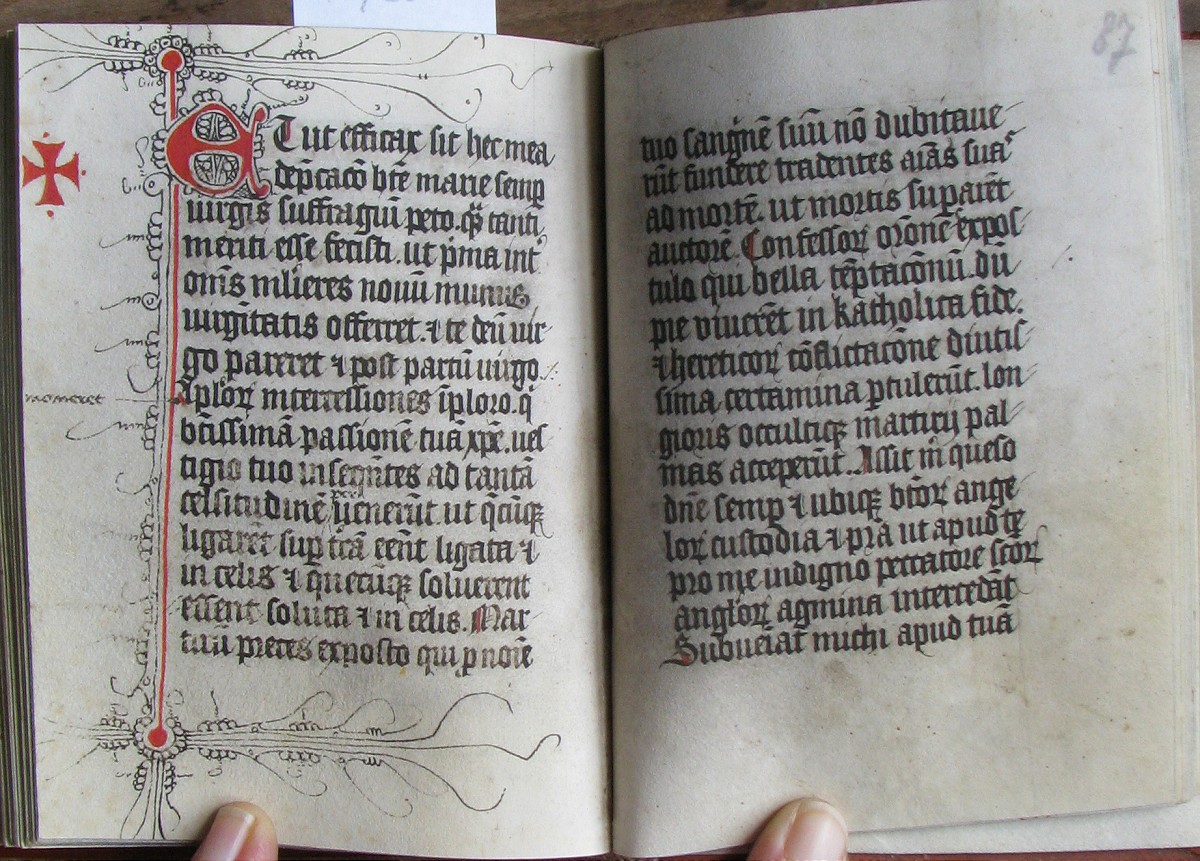 ET ut efficax sit hec mea
dep̄cacō bt̄e marie semꝑ
uirgīs suffragiū peto. q̄ tanti
meriti esse fecisti. ut p̄ma int̓
om̄s mlieres nouū munus
uirgitatis offerret. ⁊ te deū uir-
go pareret ⁊ post partū uirgo.
Apl̓oꝝ intercessiones īploro. qͥ
bt̄issimā passionē tuā xp̄e. ues
tigio tuo inseqn̄tes ad tantā
celsitudinē ꝑuenerūt. ut q̄cūqꝫ
ligarēt suꝑ tr̄ā eēnt ligata ⁊
in celis ⁊ quecūqꝫ soluerent
essent soluta ⁊ in celis. Mar-
tirū preces exposco qui ꝓ noīe
87
tuo sangnē suū nō dubitaue-
rūt fundere tradentes aīas suas
ad mortē. ut mortis suꝑarēt
auctorē. Confessoꝝ orōnē expos-
tulo qui bella tēptacōnū. dū
pie viuerēt in katholica fide.
⁊ hereticoꝝ cōflictacōne diutis-
sima. certamina ꝑtulerūt. lon-
gioris occultiqꝫ martirij pal-
mas acceperūt. Assit m̄ queso
dn̄e semꝑ ⁊ ubiqꝫ bt̄oꝝ ange-
loꝝ custodia ⁊ p̄ra ut apud te
pro me indigno peccatore sc̄oꝝ
angl̓oꝝ agmina intercedāt
Subueīat michi apud tuā